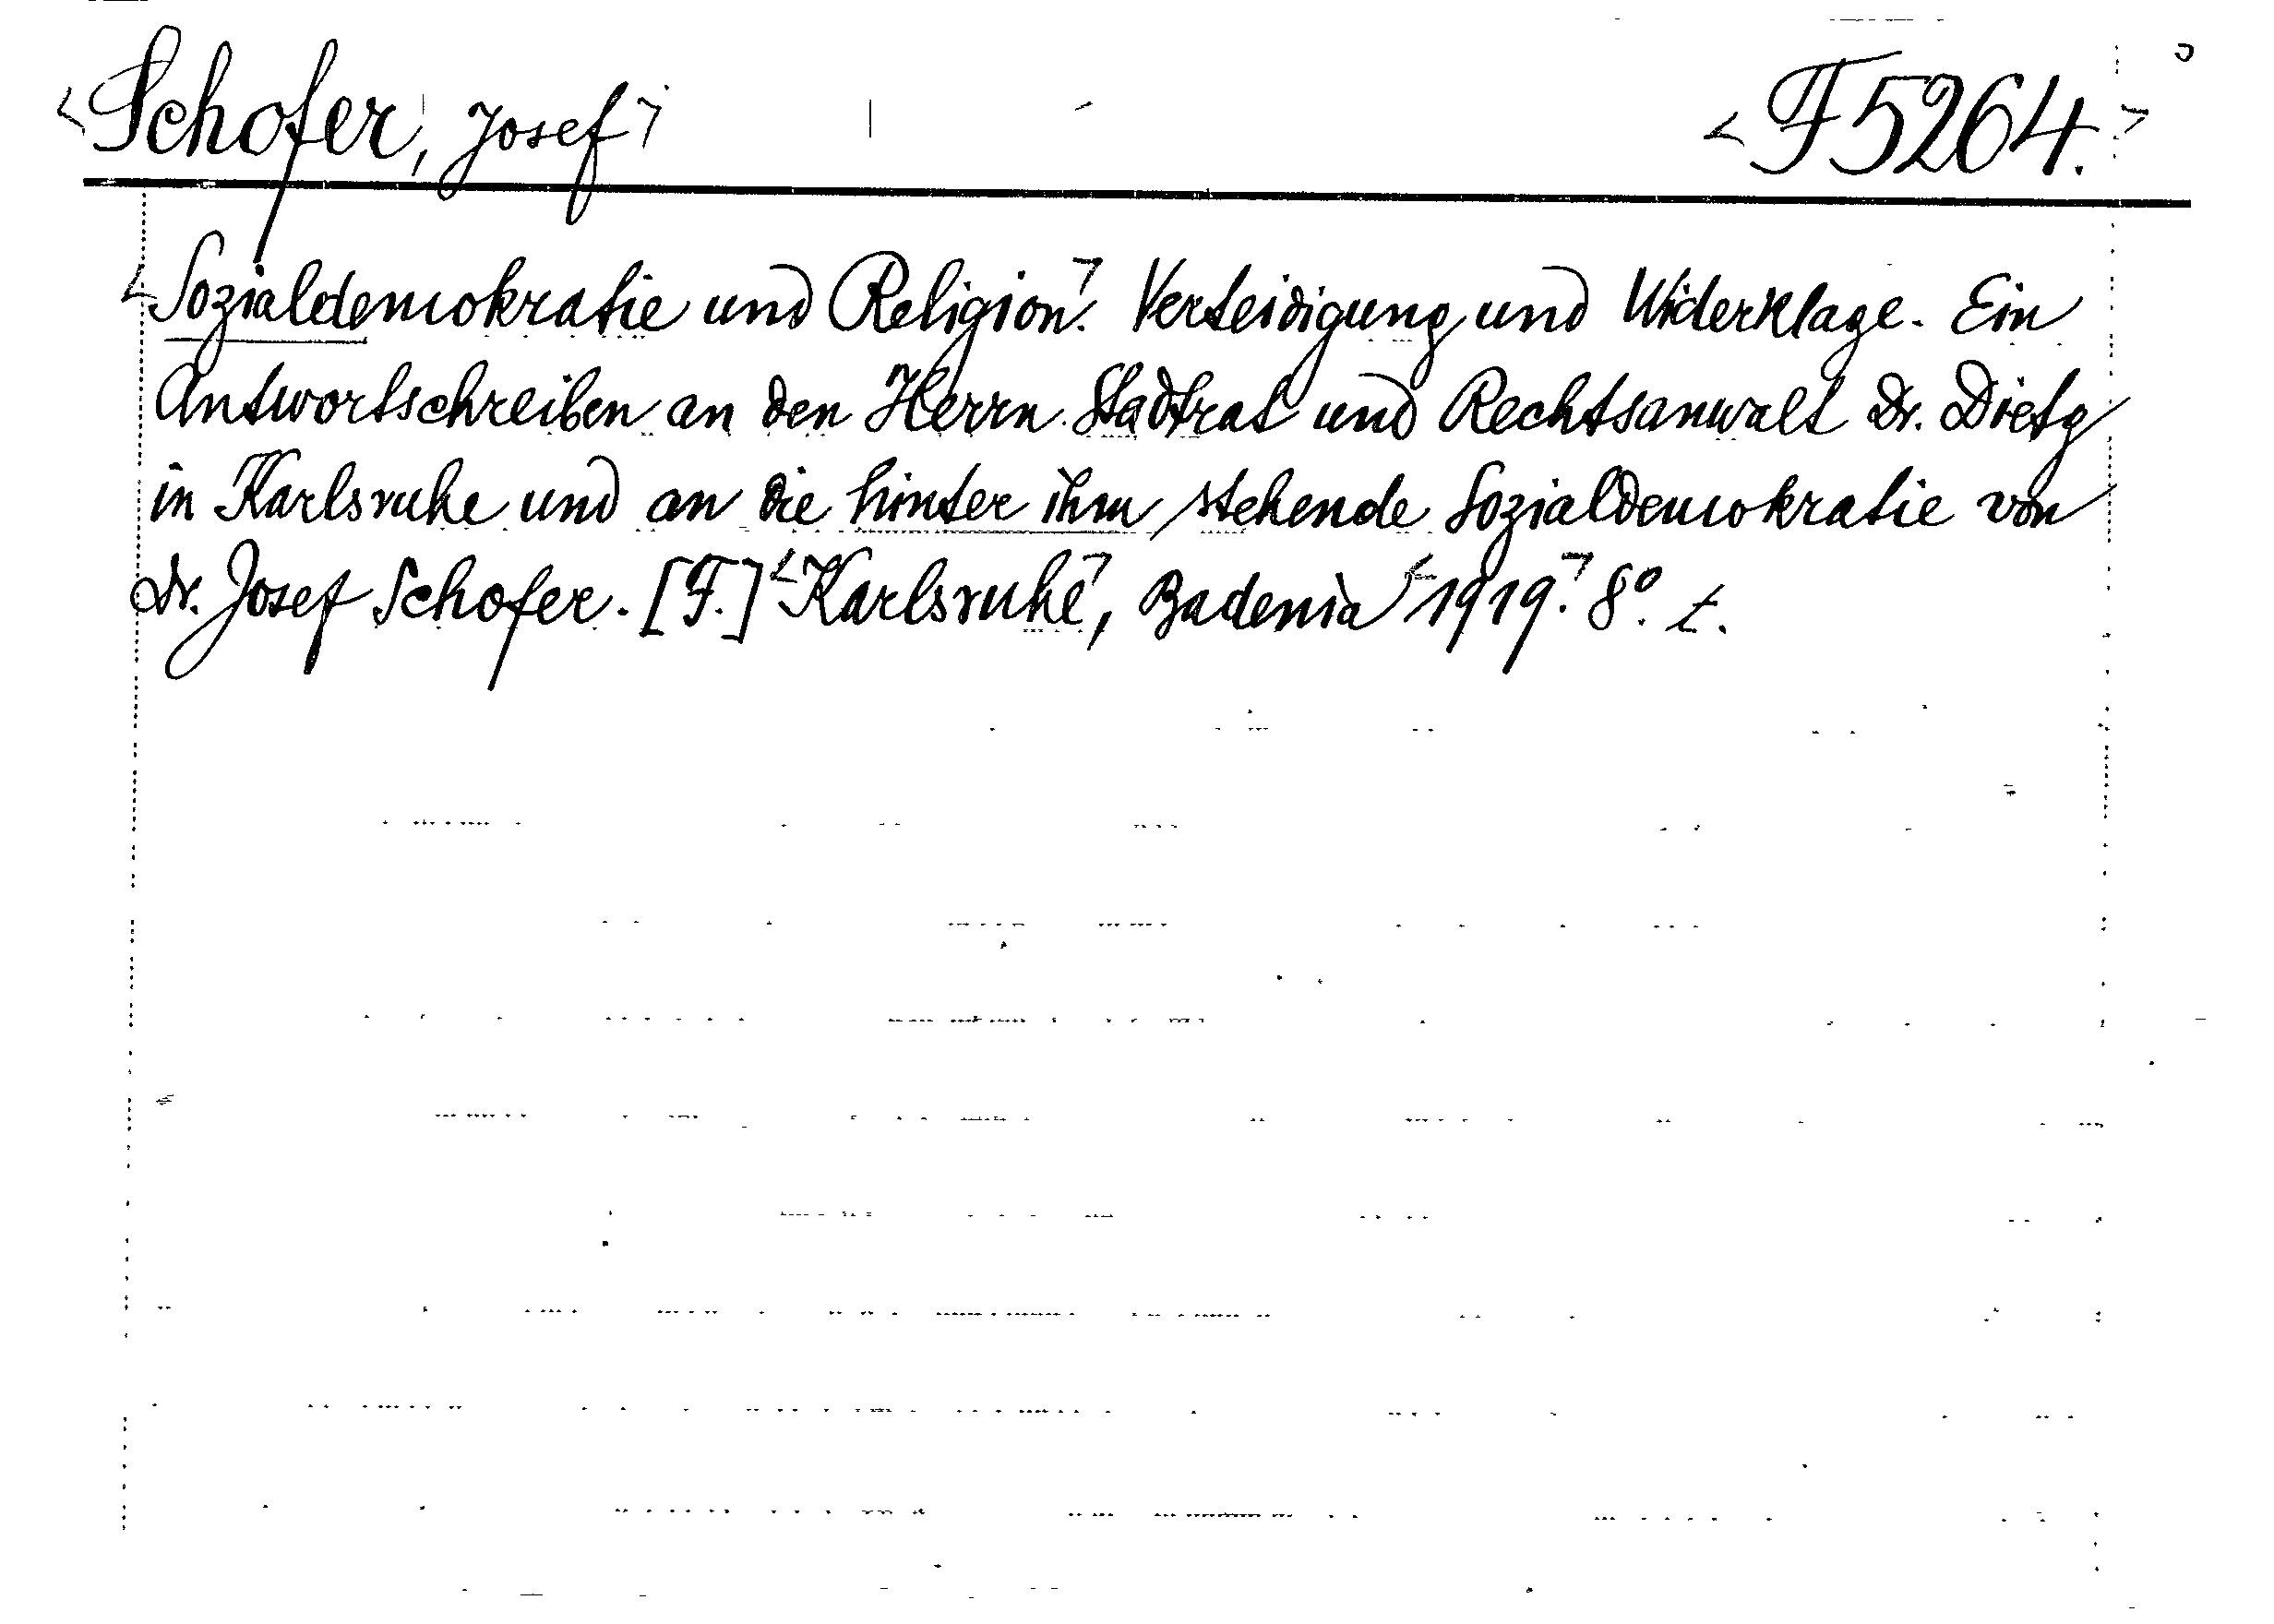 <Schofer, Josef> <F 5264.>
<Sozialdemokratie und Religion>. Verteidigung und Widerklage. Ein
Antwortschreiben an den Herrn Stadtrat und Rechtsanwalt Dr. Dietz
in Karlsruhe und an die hinter ihm stehende Sozialdemokratie von
Dr. Josef Schofer. [F.] <Karlsruhe>, Badenia <1919.> 8º. t.